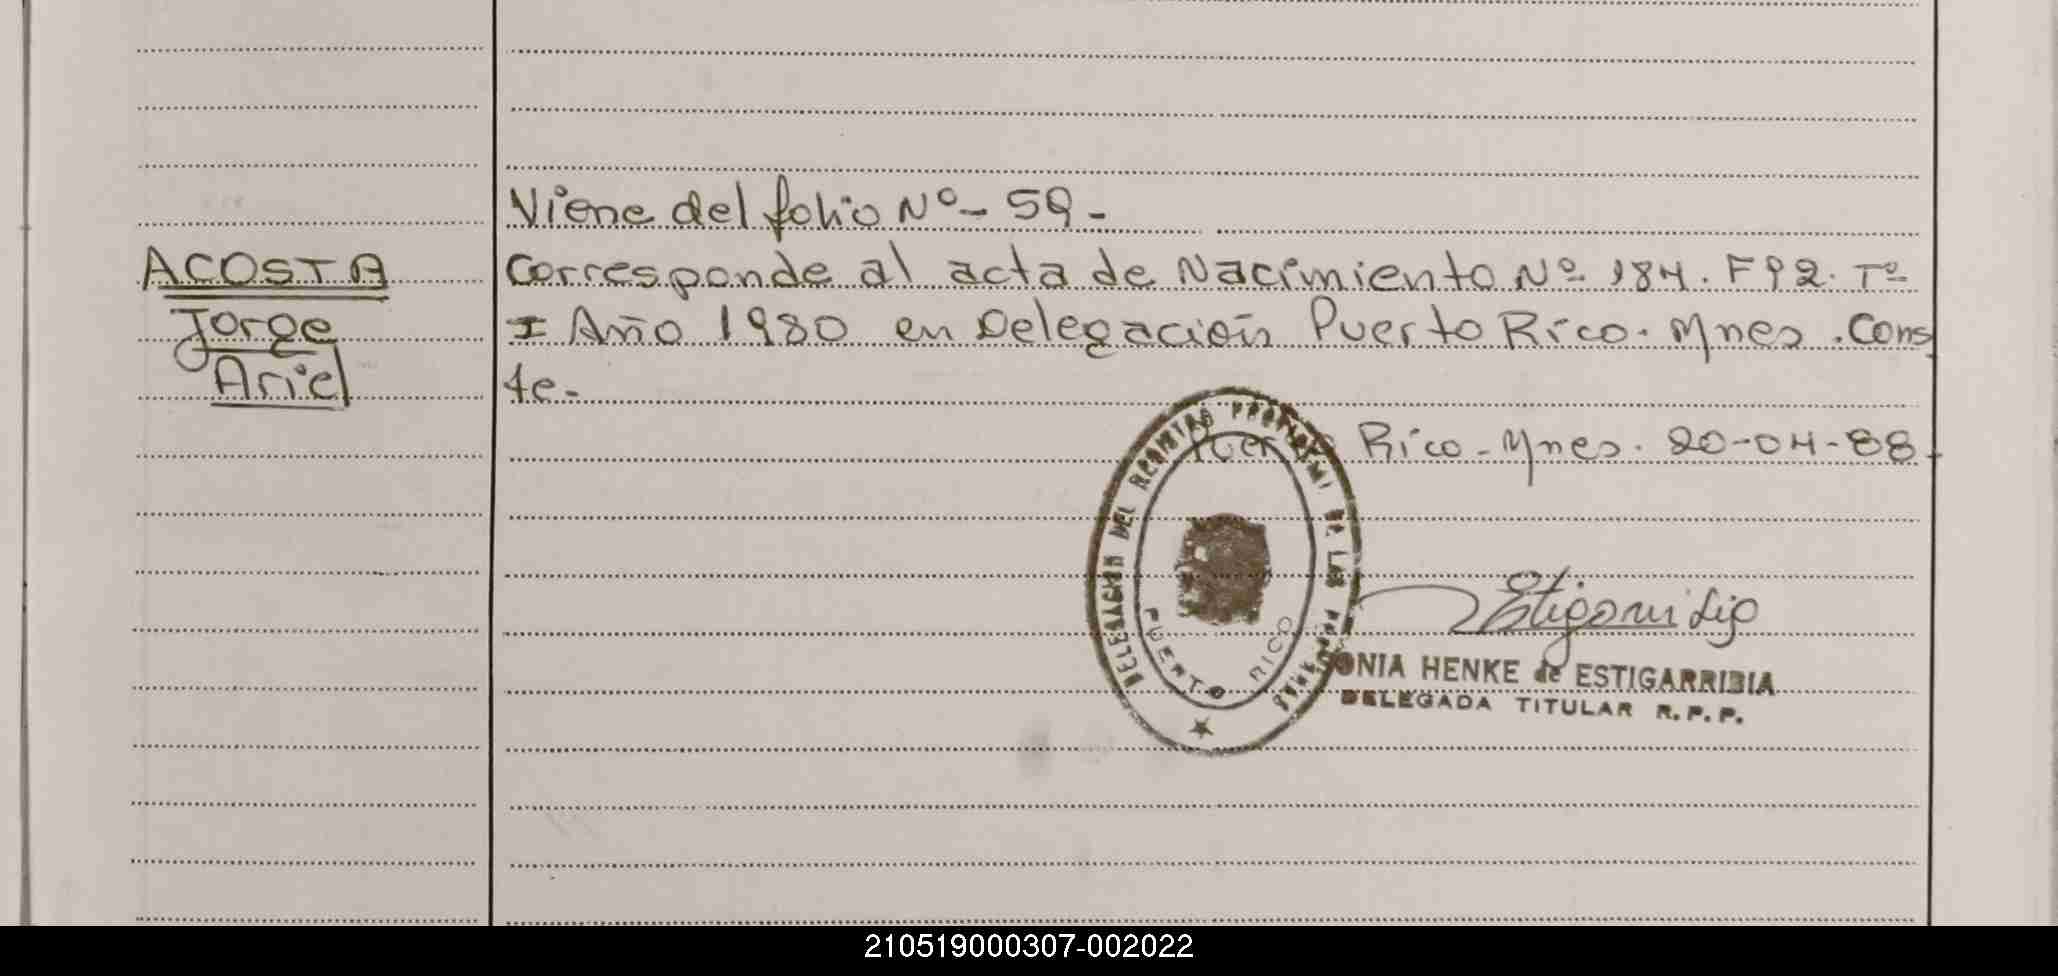 Viene del folio Nº- 59-
ACOSTA
Jorge
Ariel
Corresponde al acta de Nacimiento Nº 184. F92. Tº
I Año 1980 en Delegación Puerto Rico. Mnes. Cons
te-
Rico-Mnes. 20-04-88
DELEGACION DEL REGISTRO PROVINCIAL DE LAS PERSONAS
PUERTO RICO
SONIA HENKE de ESTIGARRIBIA
DELEGADA TITULAR R.P.P.
210519000307-002022